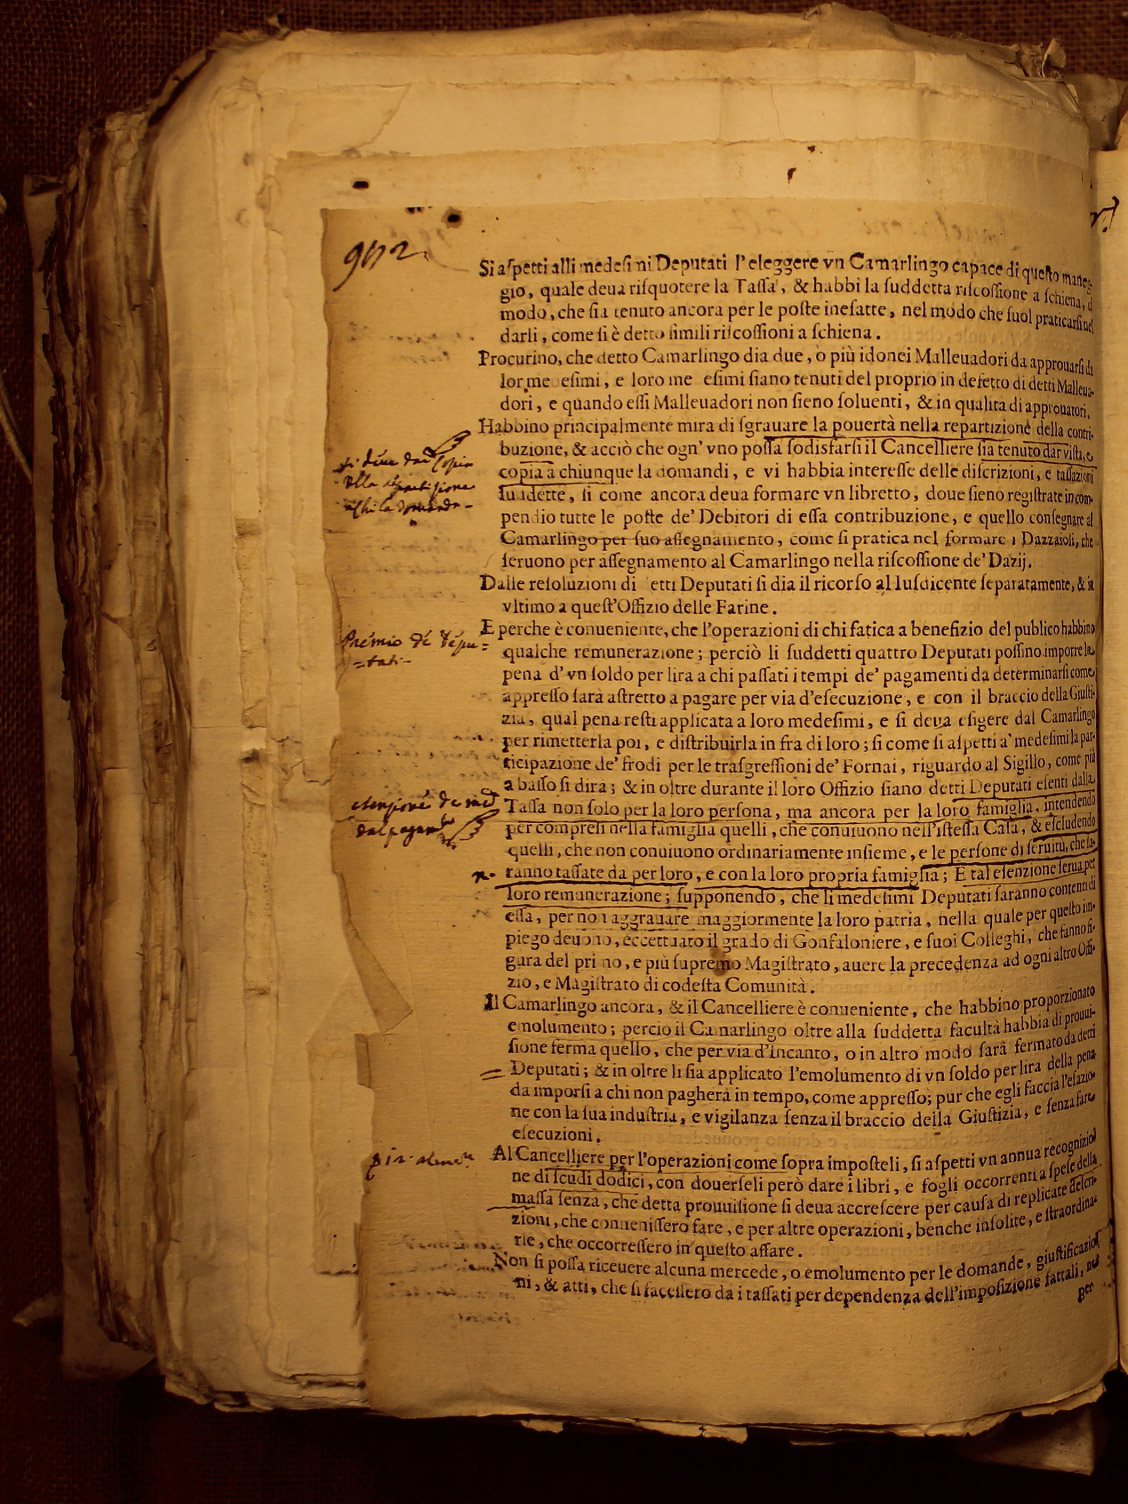 902.
Si aſpetti alli medeſimi Deputati l'eleggere vn Camarlingo capace di queſto maneg-
gio, quale deua riſquotere la Taſſa, & habbi la ſuddetta riſcoſſione a ſchiena, d
modo, che ſia tenuto ancora per le poſte ineſatte, nel modo che ſuol praticarſi nel
darli, come ſi è detto ſimili riſcoſſioni a ſchiena.
Procurino, che detto Camarlingo dia due, o più idonei Malleuadori da approuarſi da
lor me eſimi, e loro me eſimi ſiano tenuti del proprio in defetto di detti Malleua-
dori, e quando eſſi Malleuadori non ſieno ſoluenti, & in qualità di approuatori.
Habbino principalmente mira di ſgrauare la pouertà nella repartizione della contri-
buzione, & acciò che ogn' vno poſſa ſodisfarſi il Cancelliere ſia tenuto dar viſta, e
copia a chiunque la domandi, e vi habbia intereſſe delle diſcrizioni, e taſſazioni
ſuddette, ſi come ancora deua formare vn libretto, doue ſieno regiſtrate in com-
pendio tutte le poſte de' Debitori di eſſa contribuzione, e quello conſegnare al
Camarlingo per ſuo aſſegnamento, come ſi pratica nel formare i Dazzaioli, che
ſeruono per aſſegnamento al Camarlingo nella riſcoſſione de' Dazij.
Si deve dar Copia
della repartizione
a chi la domanda-
Dalle reſoluzioni di etti Deputati ſi dia il ricorſo al Iuſdicente ſeparatamente, & in
vltimo a queſt'Offizio delle Farine.
E perche è conueniente, che l'operazioni di chi fatica a benefizio del publico habbino
qualche remunerazione; perciò li ſuddetti quattro Deputati poſſino imporre la
pena d' vn ſoldo per lira a chi paſſati i tempi de' pagamenti da determinarſi come
appreſſo ſarà aſtretto a pagare per via d'eſecuzione, e con il braccio della Giuſti-
zia, qual pena reſti applicata a loro medeſimi, e ſi deua eſigere dal Camarlingo
per rimetterla poi, e diſtribuirla in fra di loro; ſi come ſi aſpetti a' medeſimi la par-
ticipazione de' frodi per le traſgreſſioni de' Fornai, riguardo al Sigillo, come più
a baſſo ſi dira; & in oltre durante il loro Offizio ſiano detti Deputati eſenti dalla
Taſſa non ſolo per la loro perſona, ma ancora per la loro famiglia, intendendo
per compreſi nella famiglia quelli, che conuiuono nell'iſteſſa Caſa, & eſcludendo
quelli, che non conuiuono ordinariamente inſieme, e le perſone di ſeruitù, che ſa-
ranno taſſate da per loro, e con la loro propria famiglia; E tal eſenzione ſerua per
loro remunerazione; ſupponendo, che li medeſimi Deputati ſaranno contenti di
eſſa, per non aggrauare maggiormente la loro patria, nella quale per queſto im-
piego deuono, eccettuato il grado di Gonfaloniere, e ſuoi Colleghi, che fanno fi-
gura del primo, e più ſupremo Magiſtrato, auere la precedenza ad ogni altro Offi-
zio, e Magiſtrato di codeſta Comunità.
Premio de' Depu=
=tati-
esenzione de med.
dal pagam.to
Il Camarlingo ancora, & il Cancelliere è conueniente, che habbino proporzionato
emolumento; percio il Camarlingo oltre alla ſuddetta facultà habbia di prouui-
ſione ferma quello, che per via d'Incanto, o in altro modo ſarà fermato da detti
Deputati; & in oltre li ſia applicato l'emolumento di vn ſoldo per lira della pena
da imporſi a chi non pagherà in tempo, come appreſſo; pur che egli faccia l'eſazio-
ne con la ſua induſtria, e vigilanza ſenza il braccio della Giuſtizia, e ſenza fare
eſecuzioni.
Al Cancelliere per l'operazioni come ſopra impoſteli, ſi aſpetti vn annua recognizio-
ne di ſcudi dodici, con douerſeli però dare i libri, e fogli occorrenti a ſpeſe della
maſſa ſenza, che detta prouuiſione ſi deua accreſcere per cauſa di replicate deſcri-
zioni, che conueniſſero fare, e per altre operazioni, benche inſolite, e ſtraordina-
rie, che occorreſſero in queſto affare.
Non ſi poſſa riceuere alcuna mercede, o emolumento per le domande, giuſtificazio-
ni, & atti, che ſi faceſſero da i taſſati per dependenza dell'impoſizione fattali, nel
per